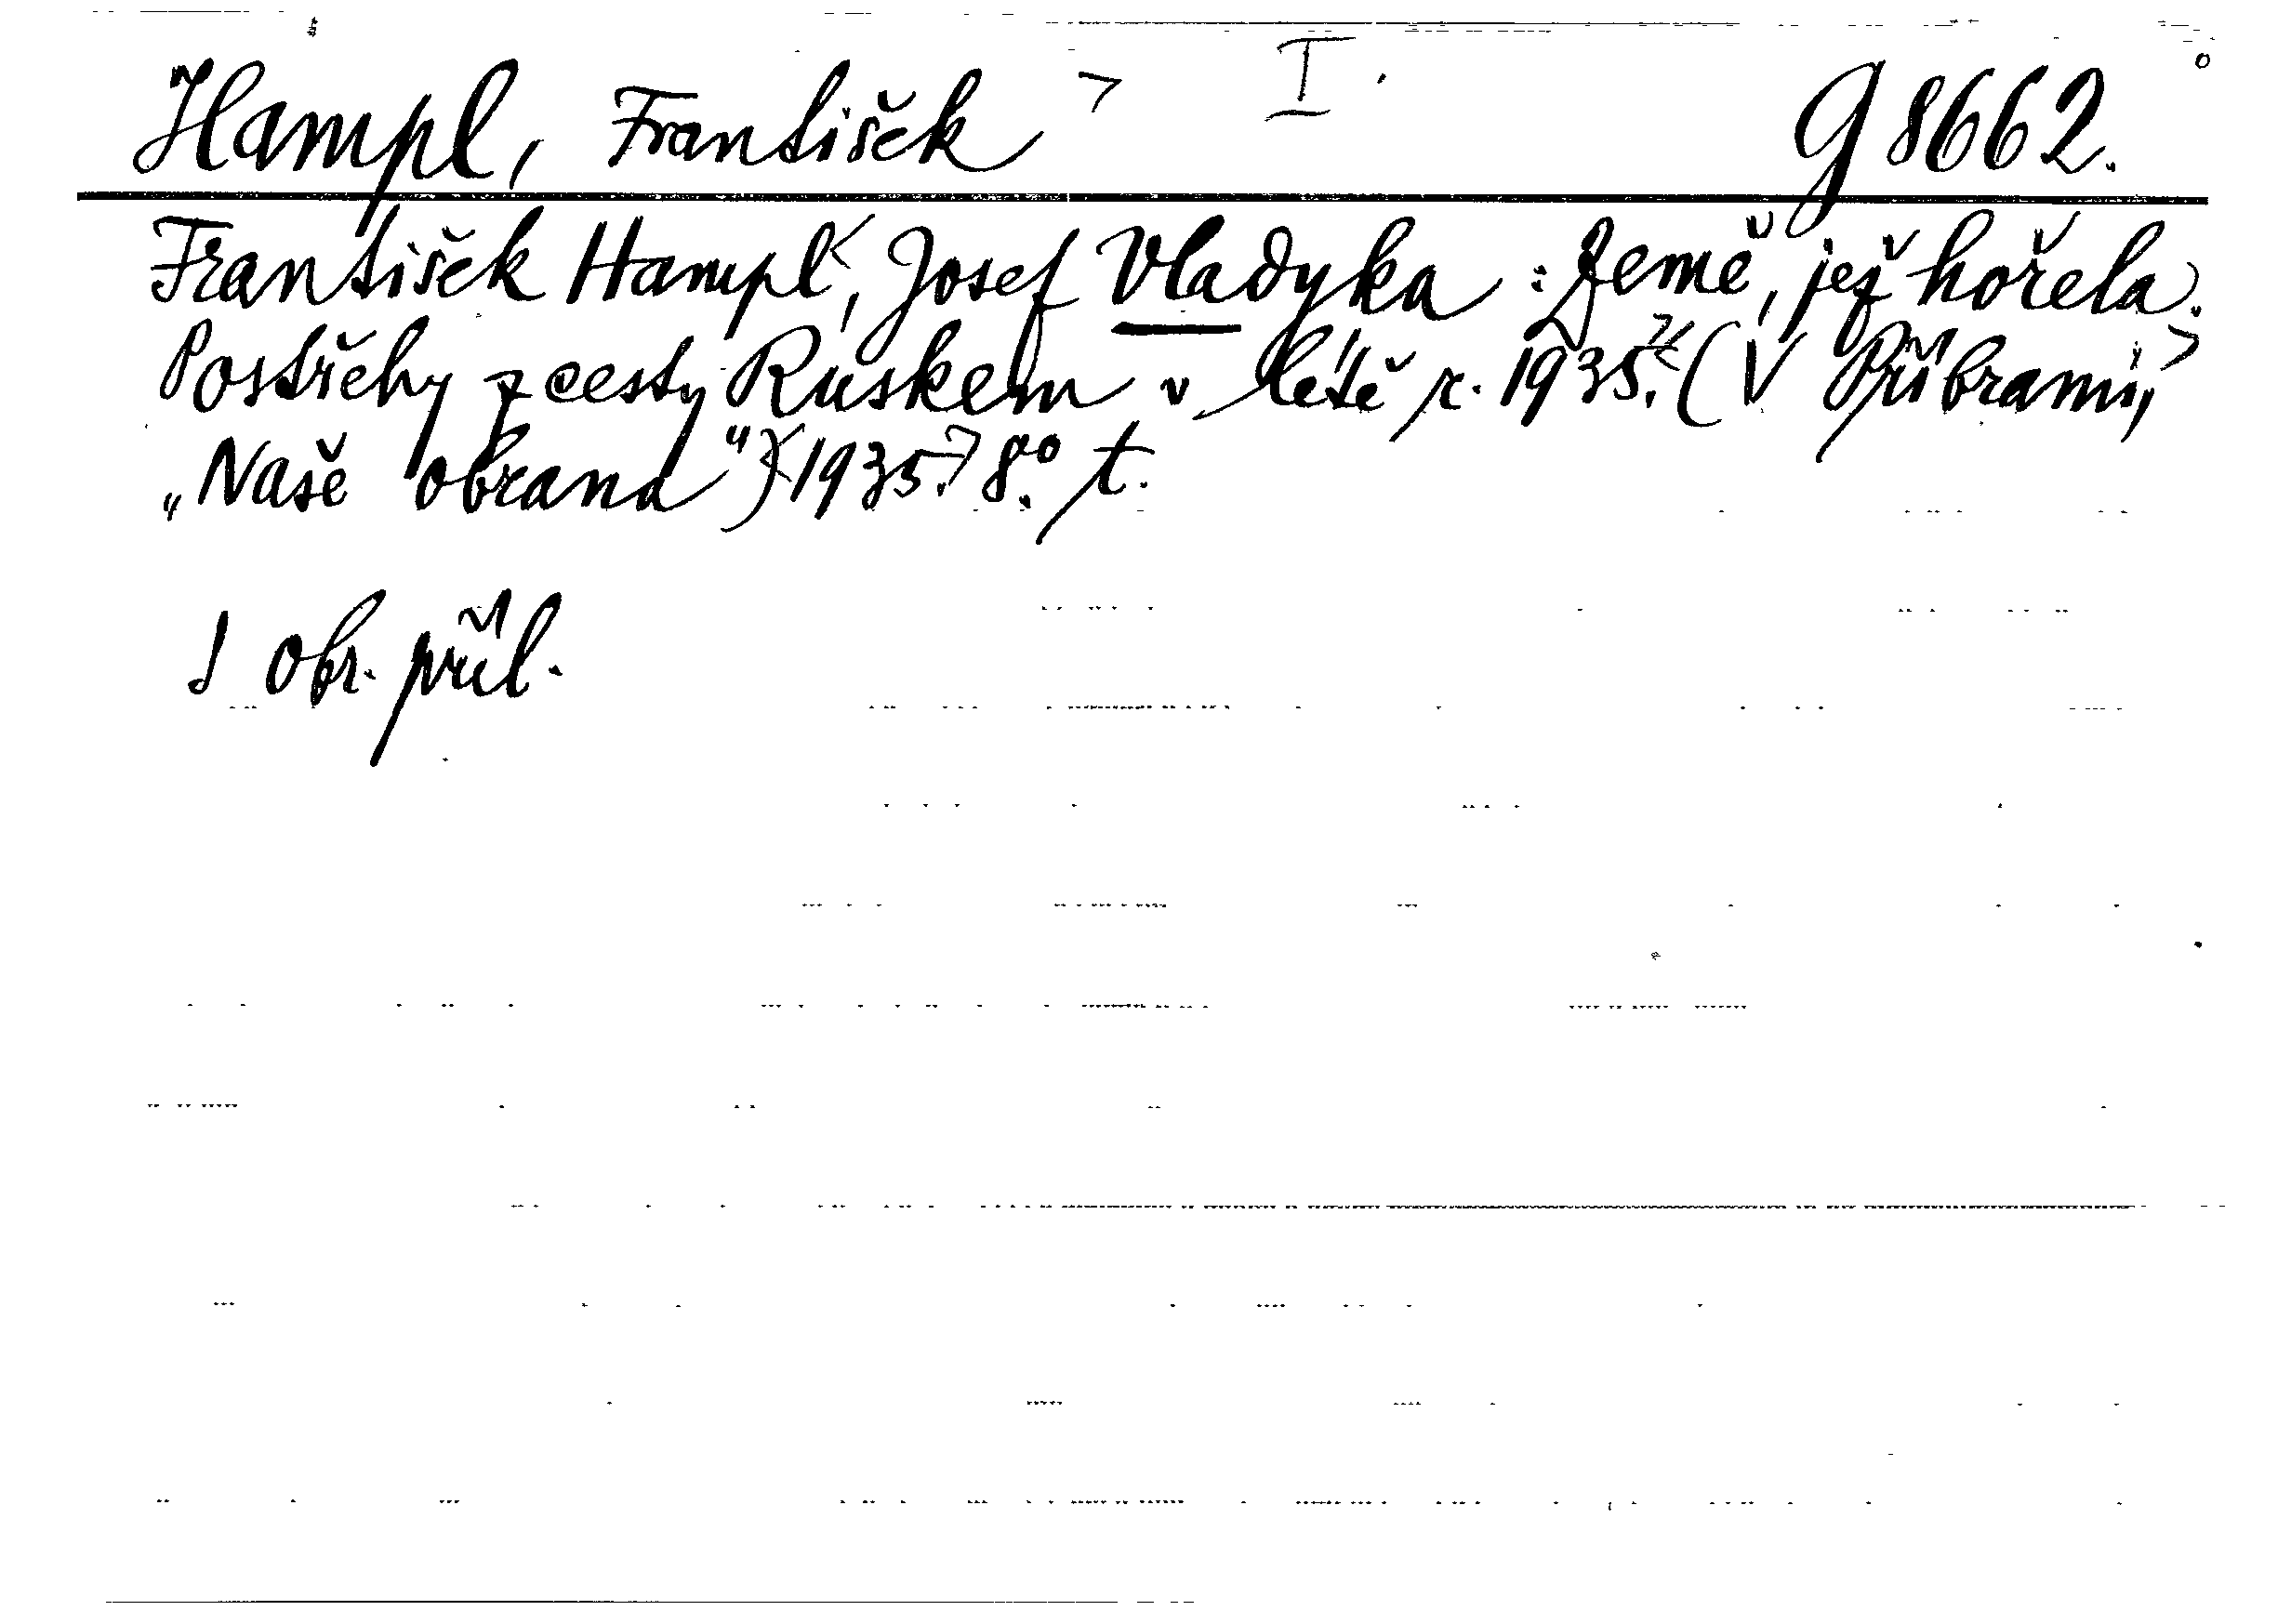 Hampl, František I. G 8662.
František Hampl, Josef Vladyka: Země, jež hořela.
Postřehy z cesty Ruskem v létě r. 1935. (V Příbrami,
„Naše obrana") 1935. 8.° t.
1 obr. příl.